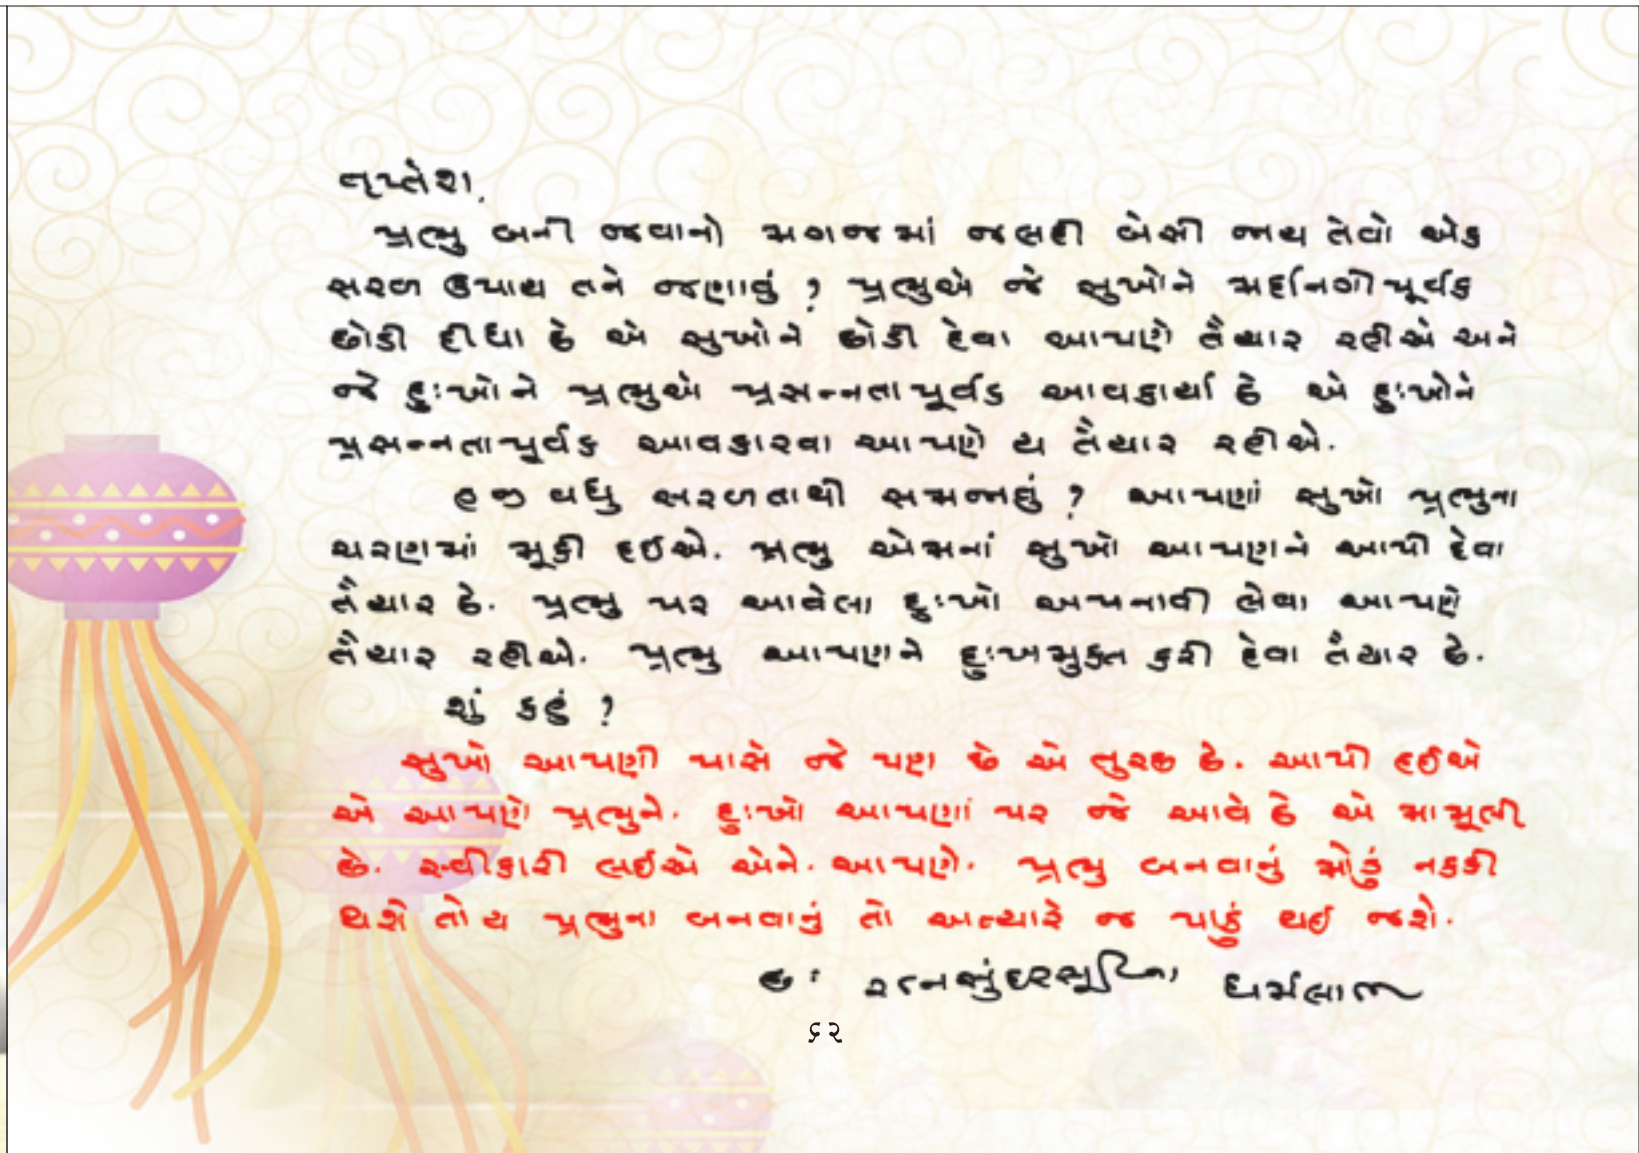 નૃપ્તેશ,
પ્રભુ બની જવાનો મગજમાં જલદી બેસી જાય તેવો એક
સરળ ઉપાય તને જણાવું ? પ્રભુએ જે સુખોને મર્દાનગીપૂર્વક
છોડી દીધા છે એ સુખોને છોડી દેવા આપણે તૈયાર રહીએ અને
જે દુઃખોને પ્રભુએ પ્રસન્નતાપૂર્વક આવકાર્યા છે એ દુઃખોને
પ્રસન્નતાપૂર્વક આવકારવા આપણે ય તૈયાર રહીએ.
હજી વધુ સરળતાથી સમજાવું ? આપણાં સુખો પ્રભુના
ચરણમાં મૂકી દઈએ. પ્રભુ એમનાં સુખો આપણને આપી દેવા
તૈયાર છે. પ્રભુ પર આવેલા દુઃખો અપનાવી લેવા આપણે
તૈયાર રહીએ. પ્રભુ આપણને દુઃખમુક્ત કરી દેવા તૈયાર છે.
શું કહું ?
સુખો આપણી પાસે જે પણ છે એ તુચ્છ છે. આપી દઈએ
એ આપણે પ્રભુને. દુઃખો આપણાં પર જે આવે છે એ મામૂલી
છે. સ્વીકારી લઈએ એને. આપણે. પ્રભુ બનવાનું મોડું નક્કી
થશે તો ય પ્રભુના બનવાનું તો અત્યારે જ પાકું થઈ જશે.
લ: રત્નસુંદરસૂરિના ધર્મલાભ
૬૨